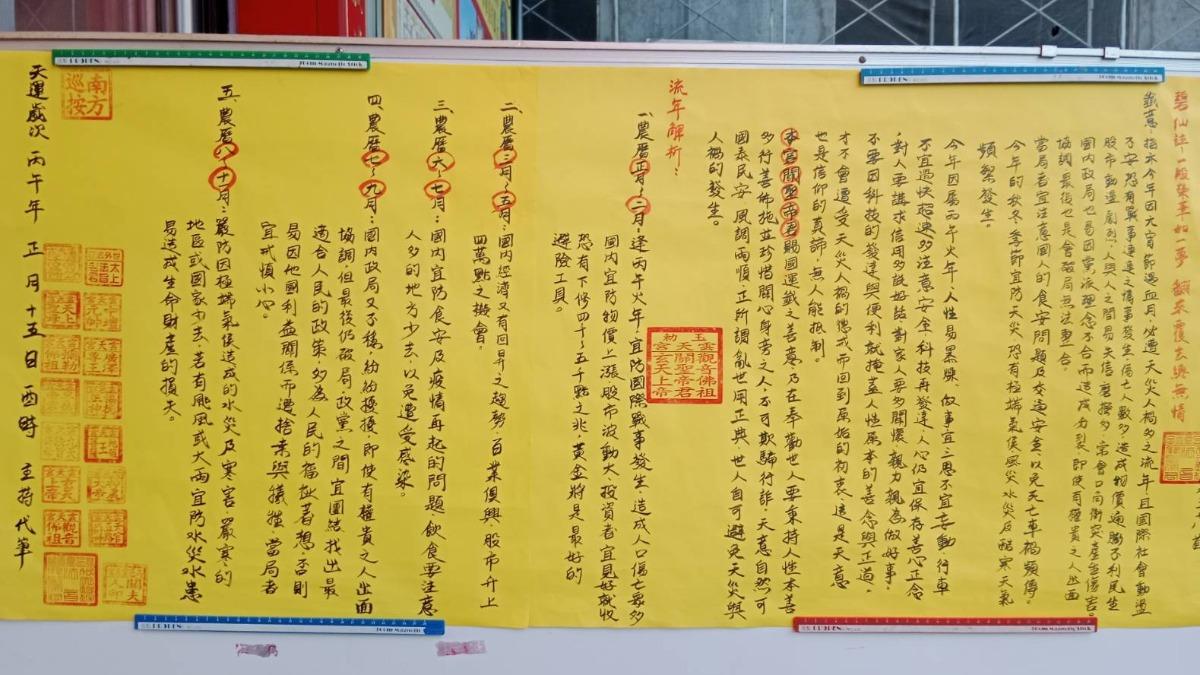 碧仙註:一般發達如一夢 翻來覆去與無情
籤意:指示今年因大育節遇血月必遭天災人禍多之流年且國際社會動盪
不安恐有戰事連連之情事發生傷亡人數多,造成物價通膨不利民生
股市動盪劇烈,人與人之間易失信磨擦多,常會口角衝突產生傷害
國內政局也易因黨派理念不合而造成分裂,即使有權貴之人出面
協調最後也是會破局無法更合。
當局者宜注意國人的食安問題及交通安全,以免天亡車禍頻傳。
今年的秋冬季節宜防天災恐有極端氣侯颱災水災及酷寒天氣
頻繁發生。
今年因屬丙午火年,人性易累燥、做事宜三思不宜妄動,行車
不宜過快超速多注意安全,科技再發達,人心仍宜保存善心正念
,對人要講求信用多說好話,對家人要多關懷,親力親為做好事,
不要因科技的發達與便利就掩蓋人性原本的善念與正道,
才不會遭受天災人禍的懲戒而回到原始的初衷,這是天意
也是信仰的真諦,無人能抵制。
本宮關聖帝君賜國運籤之善意,乃在奉勸世人要秉持人性本善
多行善佈施並珍惜關心身旁之人,不可欺騙行詐,天意自然可
國泰民安,風調雨順,正所謂亂世用正典,世人自可避免天災與
人禍的發生。
玉勅
雲觀音佛祖
天關聖帝君
宮玄天上帝
流年解析:
一、農曆正月~二月:逢丙午火年,宜防國際戰事發生,造成人口傷亡眾多
國內宜防物價上漲股市波動大,投資者宜見好就收
恐有下修四千~五千點之兆,黃金將是最好的
避險工具。
二、農曆三月~五月:國內經濟又有回昇之趨勢,百業俱興,股市升上
四萬點之機會。
三、農曆六~七月:國內宜防食安及疫情再起的問題,飲食要注意
人多的地方少去,以免遭受感染。
四、農曆七~九月:國內政局又不穩,紛紛擾擾,即使有權貴之人出面
協調但最後仍破局,政黨之間宜團結,找出最
適合人民的政策多為人民的福祉著想,否則
易因地國利益關係而遭捨棄與犧牲,當局者
宜戒慎小心。
五、農曆八~十一月:嚴防因極端氣侯造成的水災及寒害,嚴寒的
地區或國家少去,若有颱風或大雨宜防水災水患
易造成生命財產的損失。
南方巡按
天運歲次 丙午年 正月十五日 酉時 主持代筆